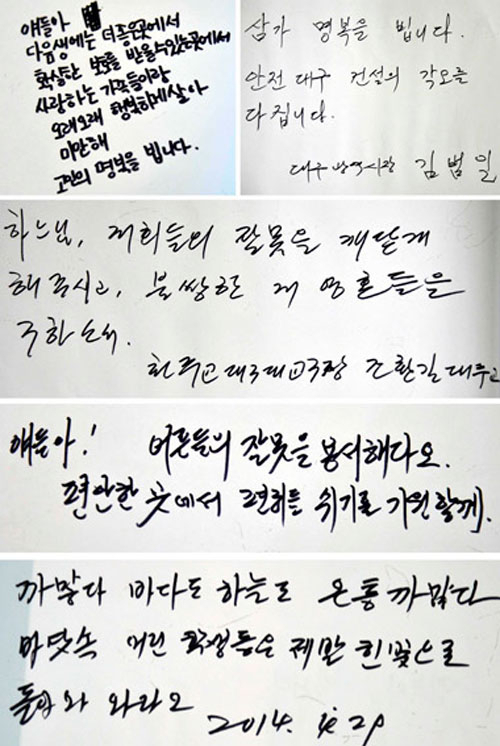 얘들아
다음생에는 더좋은곳에서
확실한 보호를 받을수있는곳에서
사랑하는 가족들이랑
오래오래 행복하게살아
미안해
고인의 명복을 빕니다.
삼가 명복을 빕니다.
안전대구 건설의 각오를
다집니다.
대구광역시장 김범일
하느님, 저희들의 잘못을 깨닫게
해주시고, 불쌍한 저 영혼들을
구하소서.
천주교대구대교구장 조환길대주교
얘들아! 어른들의 잘못을 용서해다오.
편안한 곳에서 편히들 쉬기를 기원할게.
까맣다 바다도 하늘도 온통까맣다
바닷속 어린 학생들은 제발 흰꽃으로
돌아와 와라오
2014. 4. 29